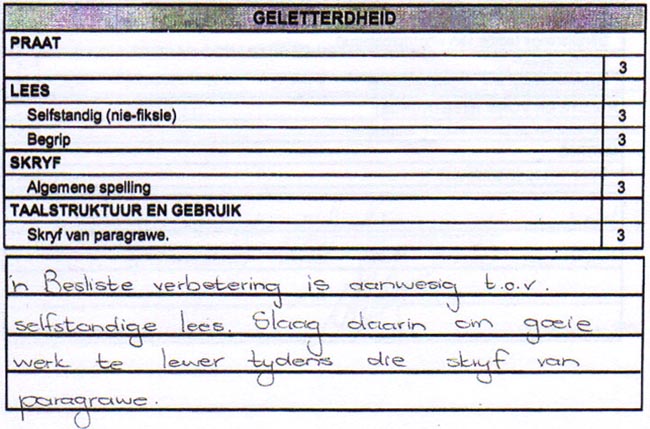 GELETTERDHEID
PRAAT
3
LEES
Selfstandig (nie-fiksie) 3
Begrip 3
SKRYF
Algemene spelling 3
TAALSTRUKTUUR EN GEBRUIK
Skryf van paragrawe. 3
'n Besliste verbetering is aanwesig t.o.v.
selfstandige lees. Slaag daarin om goeie
werk te lewer tydens die skryf van
paragrawe.